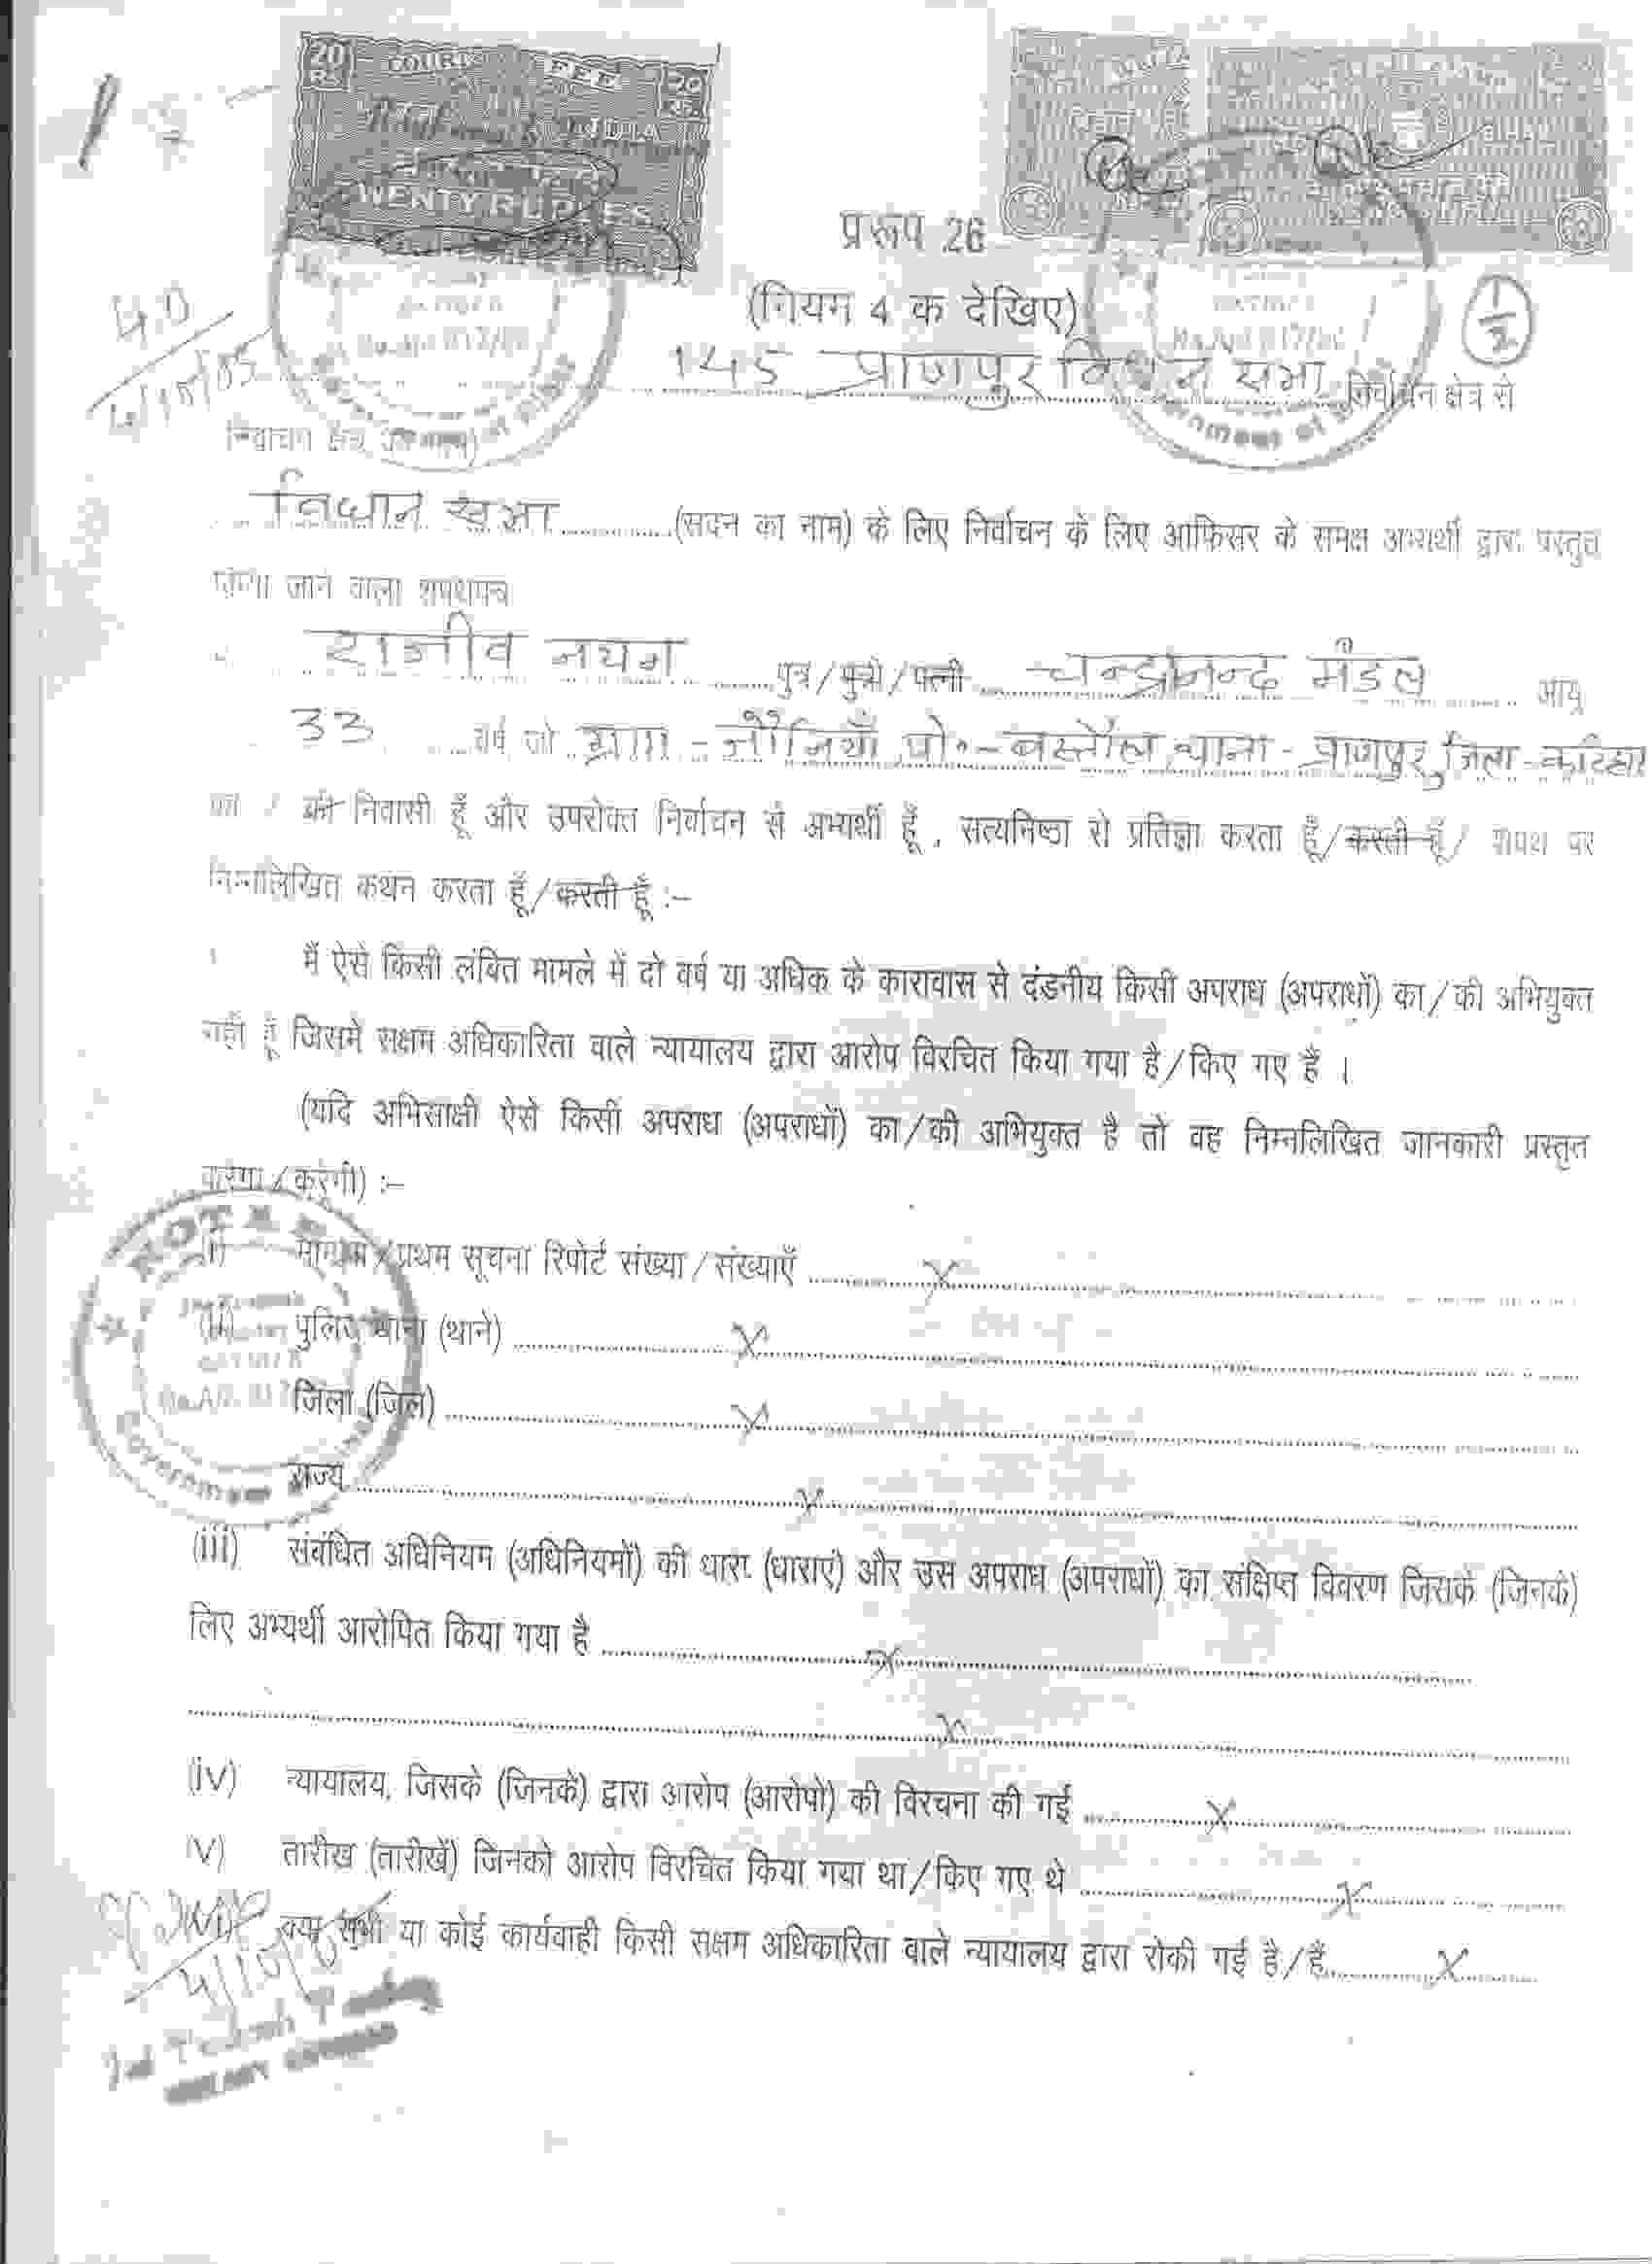 20 Rs. COURT FEE 20 Rs.
INDIA
TWENTY RUPEES
BIHAR
प्ररूप 26
(नियम 4 क देखिए)
1/2
40
4/10/05
145 प्राणपुर विधान सभा निर्वाचन क्षेत्र से
निर्वाचन क्षेत्र
विधान सभा (सदन का नाम) के लिए निर्वाचन के लिए आफिसर के समक्ष अभ्यर्थी द्वारा प्रस्तुत
किया जाने वाला शपथपत्र
राजीव नयन पुत्र/पुत्री/पत्नी चन्द्रानन्द मंडल आयु
33 वर्ष जो ग्राम - पो०- बस्तौल थाना - प्राणपुर, जिला - कटिहार
का / की निवासी हूँ और उपरोक्त निर्वाचन से अभ्यर्थी हूँ , सत्यनिष्ठा से प्रतिज्ञा करता हूँ/करती हूँ/ शपथ पर
निम्नलिखित कथन करता हूँ/करती हूँ :–
मैं ऐसे किसी लंबित मामले में दो वर्ष या अधिक के कारावास से दंडनीय किसी अपराध (अपराधों) का/की अभियुक्त
नहीं हूँ जिसमे सक्षम अधिकारिता वाले न्यायालय द्वारा आरोप विरचित किया गया है/किए गए हैं ।
(यदि अभिसाक्षी ऐसे किसी अपराध (अपराधों) का/की अभियुक्त है तो वह निम्नलिखित जानकारी प्रस्तुत
करेगा/करेगी) :–
(i) मामला/प्रथम सूचना रिपोर्ट संख्या/संख्याएँ x
(ii) पुलिस थाना (थाने) x
जिला (जिले) x
राज्य x
NOTARY
KATIHAR
Government of Bihar
(iii) संबंधित अधिनियम (अधिनियमों) की धारा (धाराएं) और उस अपराध (अपराधों) का संक्षिप्त विवरण जिसके (जिनके)
लिए अभ्यर्थी आरोपित किया गया है x
x
(iv) न्यायालय, जिसके (जिनके) द्वारा आरोप (आरोपों) की विरचना की गई x
(v) तारीख (तारीखें) जिनको आरोप विरचित किया गया था/किए गए थे x
क्या सभी या कोई कार्यवाही किसी सक्षम अधिकारिता वाले न्यायालय द्वारा रोकी गई है/हैं x
4/10/05